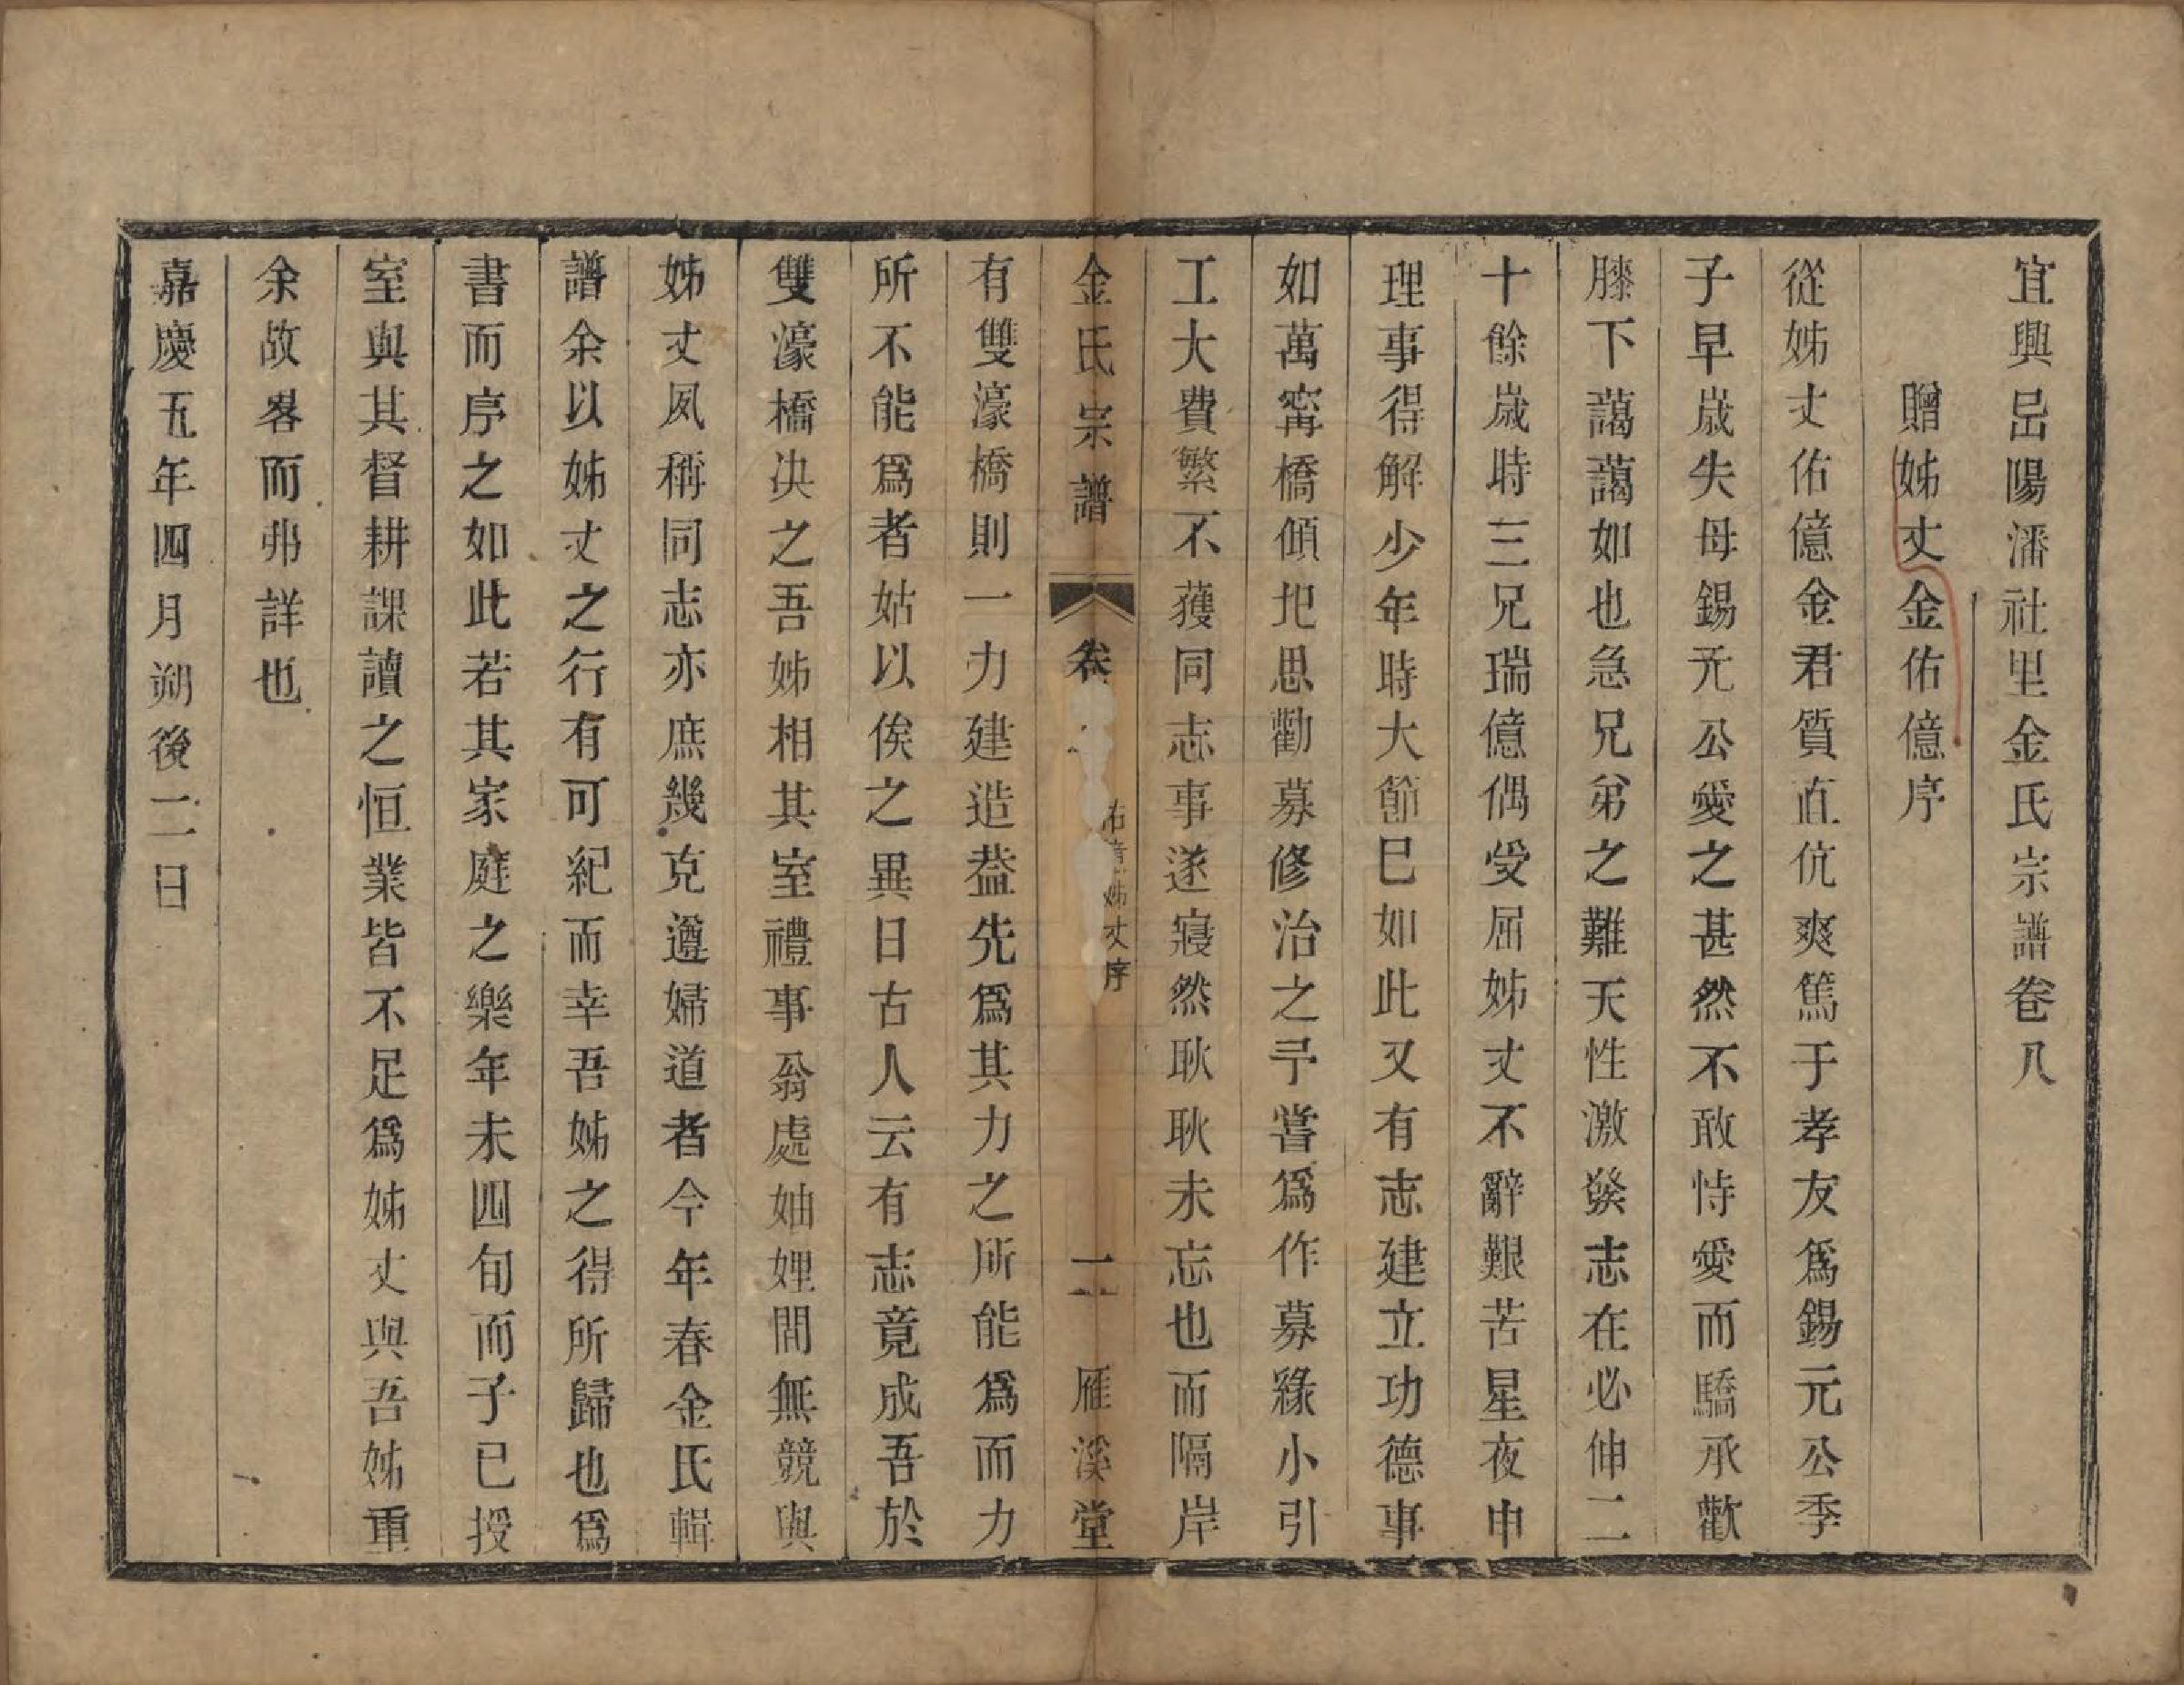 宜興岊陽潘社里金氏宗譜卷八
贈姊丈金佑億序
從姊丈佑億金君質直伉爽篤于孝友爲錫元公季
子早歲失母錫元公愛之甚然不敢恃愛而驕承歡
膝下藹藹如也急兄弟之難天性激發志在必伸二
十餘歲時三兄瑞億偶受屈姊丈不辭艱苦星夜申
理事得解少年時大節已如此又有志建立功德事
如萬寗橋傾圯思勸募修治之予嘗爲作募緣小引
工大費繁不獲同志事遂寢然耿耿未忘也而隔岸
金氏宗譜 卷 佑億姊丈序 一 雁溪堂
有雙濠橋則一力建造葢先爲其力之所能爲而力
所不能爲者姑以俟之異日古人云有志竟成吾於
雙濠橋决之吾姊相其室禮事翁處妯娌間無競與
姊丈夙稱同志亦庶幾克遵婦道者今年春金氏輯
譜余以姊丈之行有可紀而幸吾姊之得所歸也爲
書而序之如此若其家庭之樂年未四旬而子已授
室與其督耕課讀之恒業皆不足爲姊丈與吾姊重
余故畧而弗詳也
嘉慶五年四月朔後二日